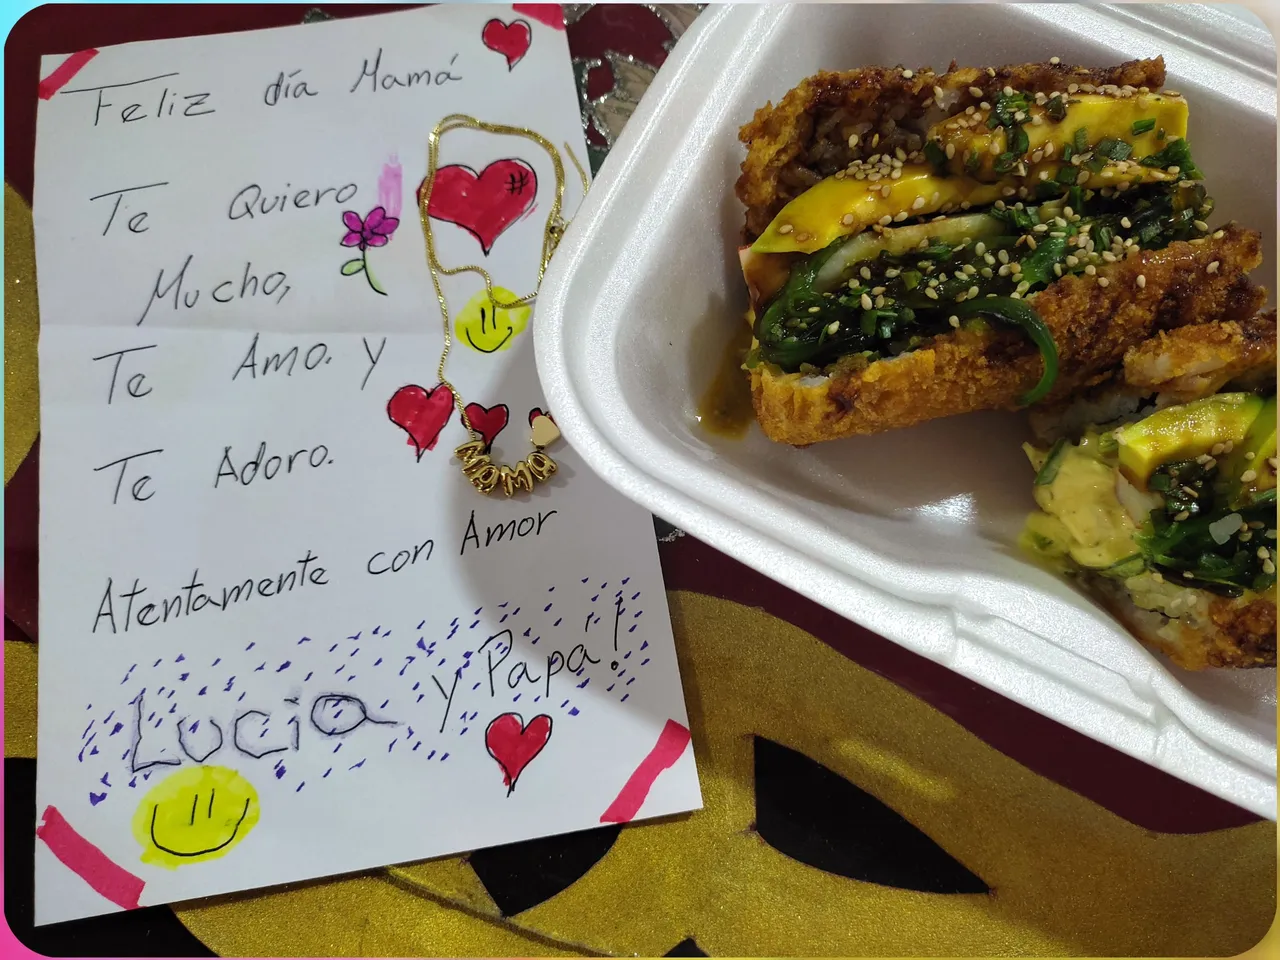 Feliz día Mamá
Te Quiero
Mucho,
Te Amo. y
Te Adoro.
MaMa
Atentamente con Amor
Lucia y Papá!